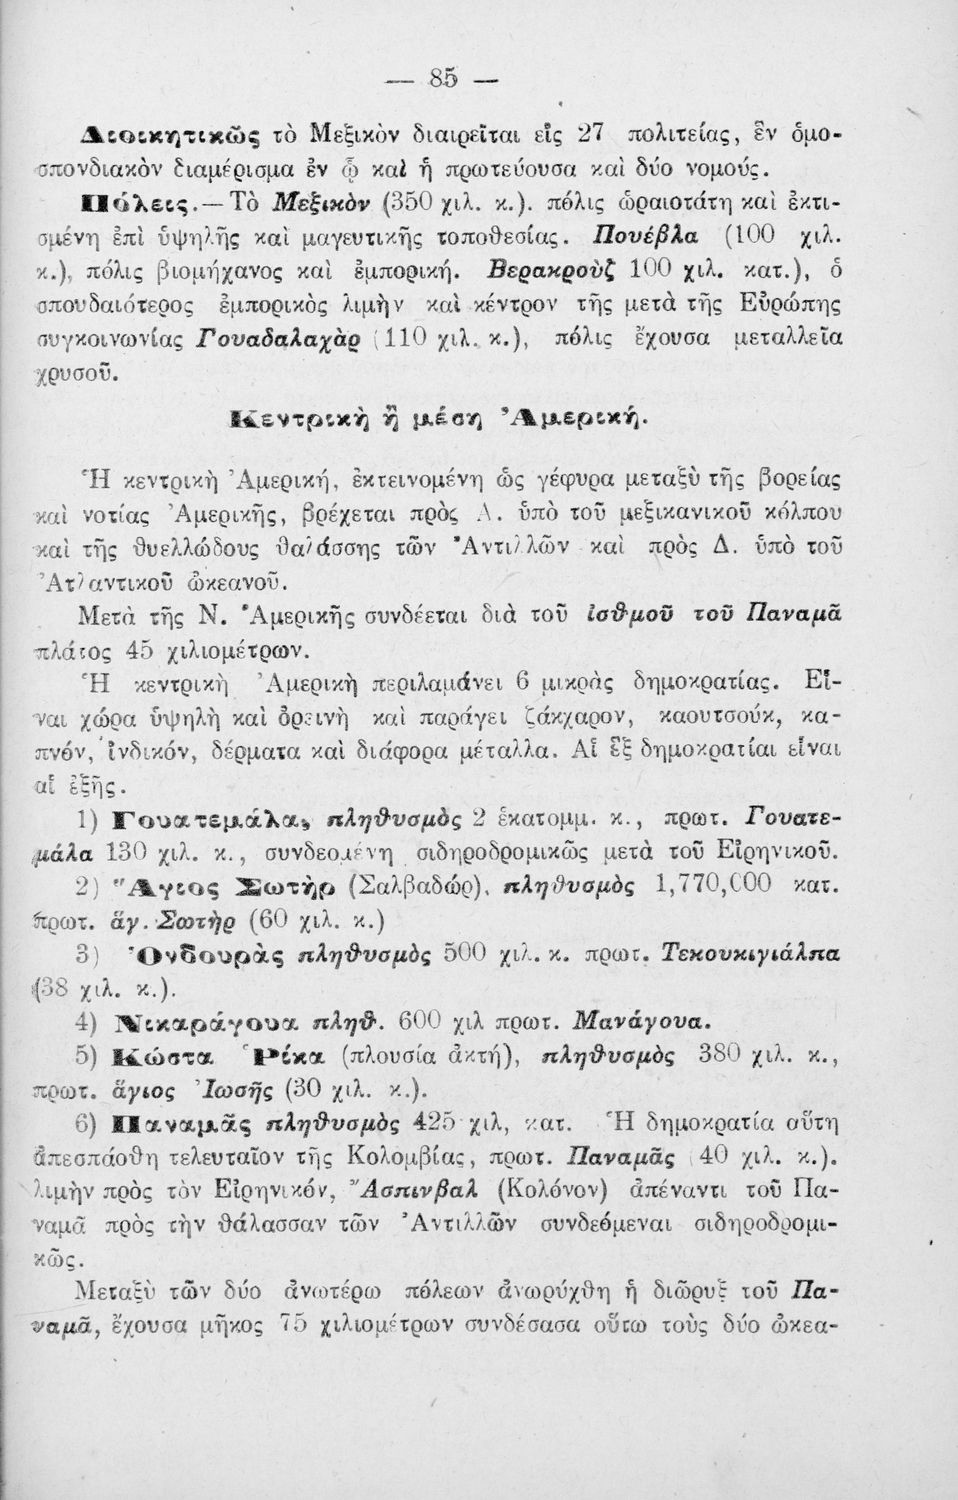 — 85 —
Διοικητικῶς τὸ Μεξικὸν διαιρεῖται εἰς 27 πολιτείας, ἓν ὁμο-
σπονδιακὸν διαμέρισμα ἐν ᾧ καὶ ἡ πρωτεύουσα καὶ δύο νομούς.
Πόλεις.—Τὸ Μεξικὸν (350 χιλ. κ.). πόλις ὡραιοτάτη καὶ ἐκτι-
σμένη ἐπὶ ὑψηλῆς καὶ μαγευτικῆς τοποθεσίας. Πουέβλα (100 χιλ.
κ.), πόλις βιομήχανος καὶ ἐμπορική. Βερακροὺζ 100 χιλ. κατ.), ὁ
σπουδαιότερος ἐμπορικὸς λιμὴν καὶ κέντρον τῆς μετὰ τῆς Εὐρώπης
συγκοινωνίας Γουαδαλαχὰρ (110 χιλ. κ.), πόλις ἔχουσα μεταλλεῖα
χρυσοῦ.
Κεντρικὴ ἢ μέση Ἀμερική.
Ἡ κεντρικὴ Ἀμερική, ἐκτεινομένη ὡς γέφυρα μεταξὺ τῆς βορείας
καὶ νοτίας Ἀμερικῆς, βρέχεται πρὸς Α. ὑπὸ τοῦ μεξικανικοῦ κόλπου
καὶ τῆς θυελλώδους θαλάσσης τῶν Ἀντιλλῶν καὶ πρὸς Δ. ὑπὸ τοῦ
Ἀτλαντικοῦ ὠκεανοῦ.
Μετὰ τῆς Ν. Ἀμερικῆς συνδέεται διὰ τοῦ ἰσθμοῦ τοῦ Παναμᾶ
πλάτος 45 χιλιομέτρων.
Ἡ κεντρικὴ Ἀμερικὴ περιλαμάνει 6 μικρὰς δημοκρατίας. Εἶ-
ναι χώρα ὑψηλὴ καὶ ὀρεινὴ καὶ παράγει ζάκχαρον, καουτσούκ, κα-
πνόν, ἰνδικόν, δέρματα καὶ διάφορα μέταλλα. Αἱ ἓξ δημοκρατίαι εἶναι
αἱ ἑξῆς.
1) Γουατεμάλα, πληθυσμὸς 2 ἑκατομμ. κ., πρωτ. Γουατε-
μάλα 130 χιλ. κ., συνδεομένη σιδηροδρομικῶς μετὰ τοῦ Εἰρηνικοῦ.
2) Ἅγιος Σωτὴρ (Σαλβαδώρ), πληθυσμὸς 1,770,000 κατ.
πρωτ. ἅγ. Σωτὴρ (60 χιλ. κ.)
3) Ὁνδουρὰς πληθυσμὸς 500 χιλ. κ. πρωτ. Τεκουκιγιάλπα
(38 χιλ. κ.).
4) Νικαράγουα πληθ. 600 χιλ πρωτ. Μανάγουα.
5) Κώστα Ῥίκα (πλουσία ἀκτή), πληθυσμὸς 380 χιλ. κ.,
πρωτ. ἅγιος Ἰωσῆς (30 χιλ. κ.).
6) Παναμᾶς πληθυσμὸς 425 χιλ, κατ. Ἡ δημοκρατία αὕτη
ἀπεσπάσθη τελευταῖον τῆς Κολομβίας, πρωτ. Παναμᾶς (40 χιλ. κ.).
λιμὴν πρὸς τὸν Εἰρηνικόν, Ἄσπινβαλ (Κολόνον) ἀπέναντι τοῦ Πα-
ναμᾶ πρὸς τὴν θάλασσαν τῶν Ἀντιλλῶν συνδεόμεναι σιδηροδρομι-
κῶς.
Μεταξὺ τῶν δύο ἀνωτέρω πόλεων ἀνωρύχθη ἡ διῶρυξ τοῦ Πα-
ναμᾶ, ἔχουσα μῆκος 75 χιλιομέτρων συνδέσασα οὕτω τοὺς δύο ὠκεα-